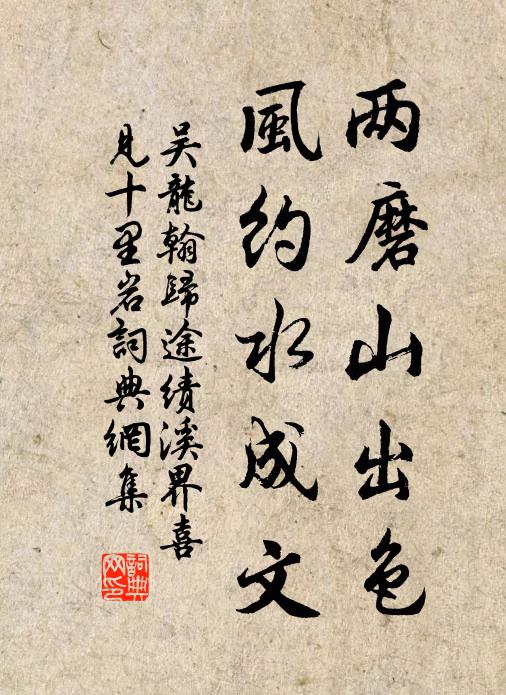 两磨山出色
風約水成文
吴龍翰歸途績溪界喜
見十里岩詞典網集
詞典
网印